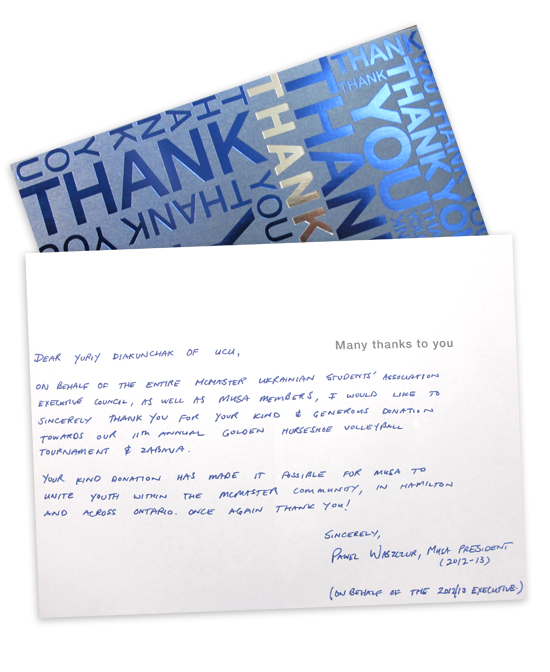 THANK YOU
THANK YOU
THANK
THANK YOU
THANK
THANK
THANK
THANK YOU
Many thanks to you
DEAR YURIY DIAKUNCHAK OF UCU,
ON BEHALF OF THE ENTIRE MCMASTER UKRAINIAN STUDENTS' ASSOCIATION
EXECUTIVE COUNCIL, AS WELL AS MUSA MEMBERS, I WOULD LIKE TO
SINCERELY THANK YOU FOR YOUR KIND & GENEROUS DONATION
TOWARDS OUR 11TH ANNUAL GOLDEN HORSESHOE VOLLEYBALL
TOURNAMENT & ZABAVA.
YOUR KIND DONATION HAS MADE IT POSSIBLE FOR MUSA TO
UNITE YOUTH WITHIN THE MCMASTER COMMUNITY, IN HAMILTON
AND ACROSS ONTARIO. ONCE AGAIN THANK YOU!
SINCERELY,
PAWEL WASZCZUR, MUSA PRESIDENT
(2012-13)
(ON BEHALF OF THE 2012/13 EXECUTIVE.)